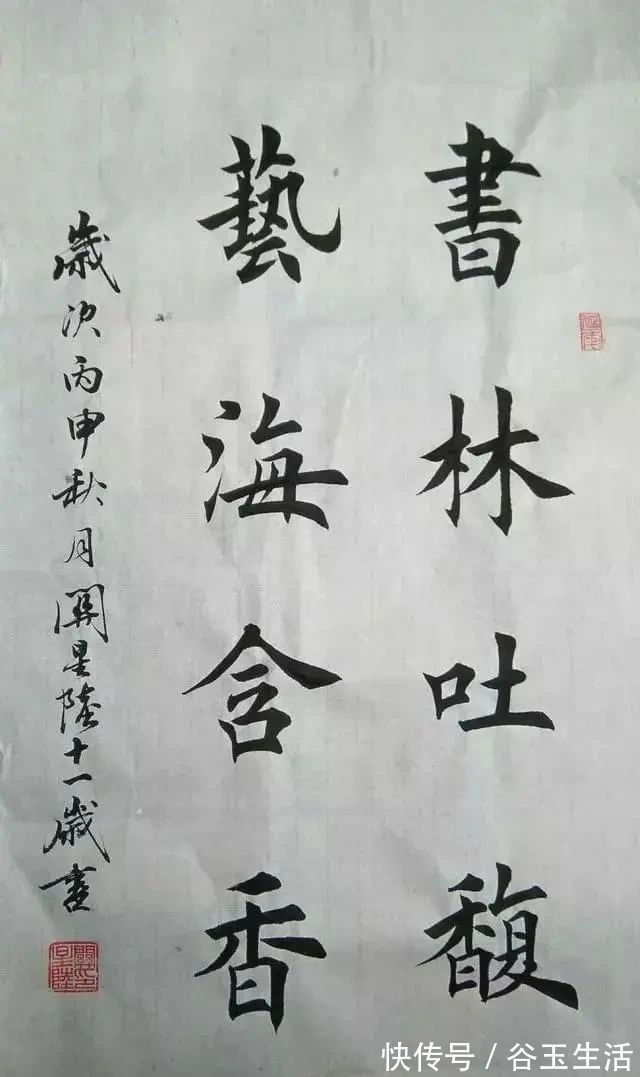 書林吐馥
藝海含香
歲次丙申秋月關星陸十一歲書
快传号／谷玉生活